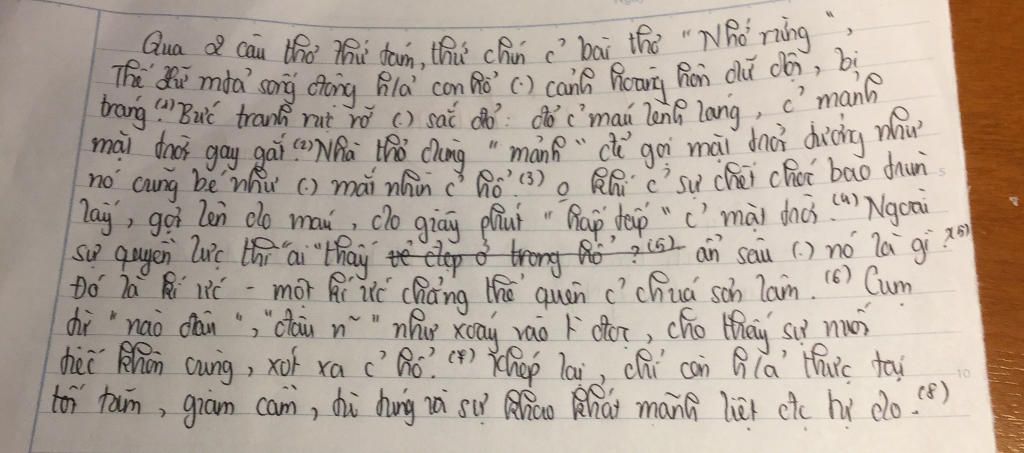 Qua 2 câu thơ thứ tám, thứ chín c' bài thơ "Nhớ rừng",
Thế Lữ miêu tả sống động h/ả con hổ (.) cảnh hoàng hôn dữ dội, bi
tráng.(1) Bức tranh rực rỡ (.) sắc đỏ: đỏ c' máu lênh láng, c' mảnh
mặt trời gay gắt.(2) Nhà thơ dùng "mảnh" để gọi mặt trời dường như
nó cũng bé như (.) mắt nhìn c' hổ.(3) khí c' sự chết chóc bao trùm
lấy, gợi lên do máu, do giây phút "hấp hấp" c' mặt trời.(4) Ngoài
sự quyền lực thì "ai" thấy vẻ đẹp ở trong hổ?(5) ẩn sâu (.) nó là gì?(5)
Đó là kí ức - một kí ức chẳng thể quên c' chúa sơn lâm.(6) Cụm
từ "nào đâu", "đâu n~" như xoáy vào t' đọc, cho thấy sự nuối
tiếc khôn cùng, xót xa c' hổ.(7) Khép lại, chỉ còn h/ả thực tại
tối tăm, giam cầm, tù túng và sự khao khát mãnh liệt đc tự do.(8)